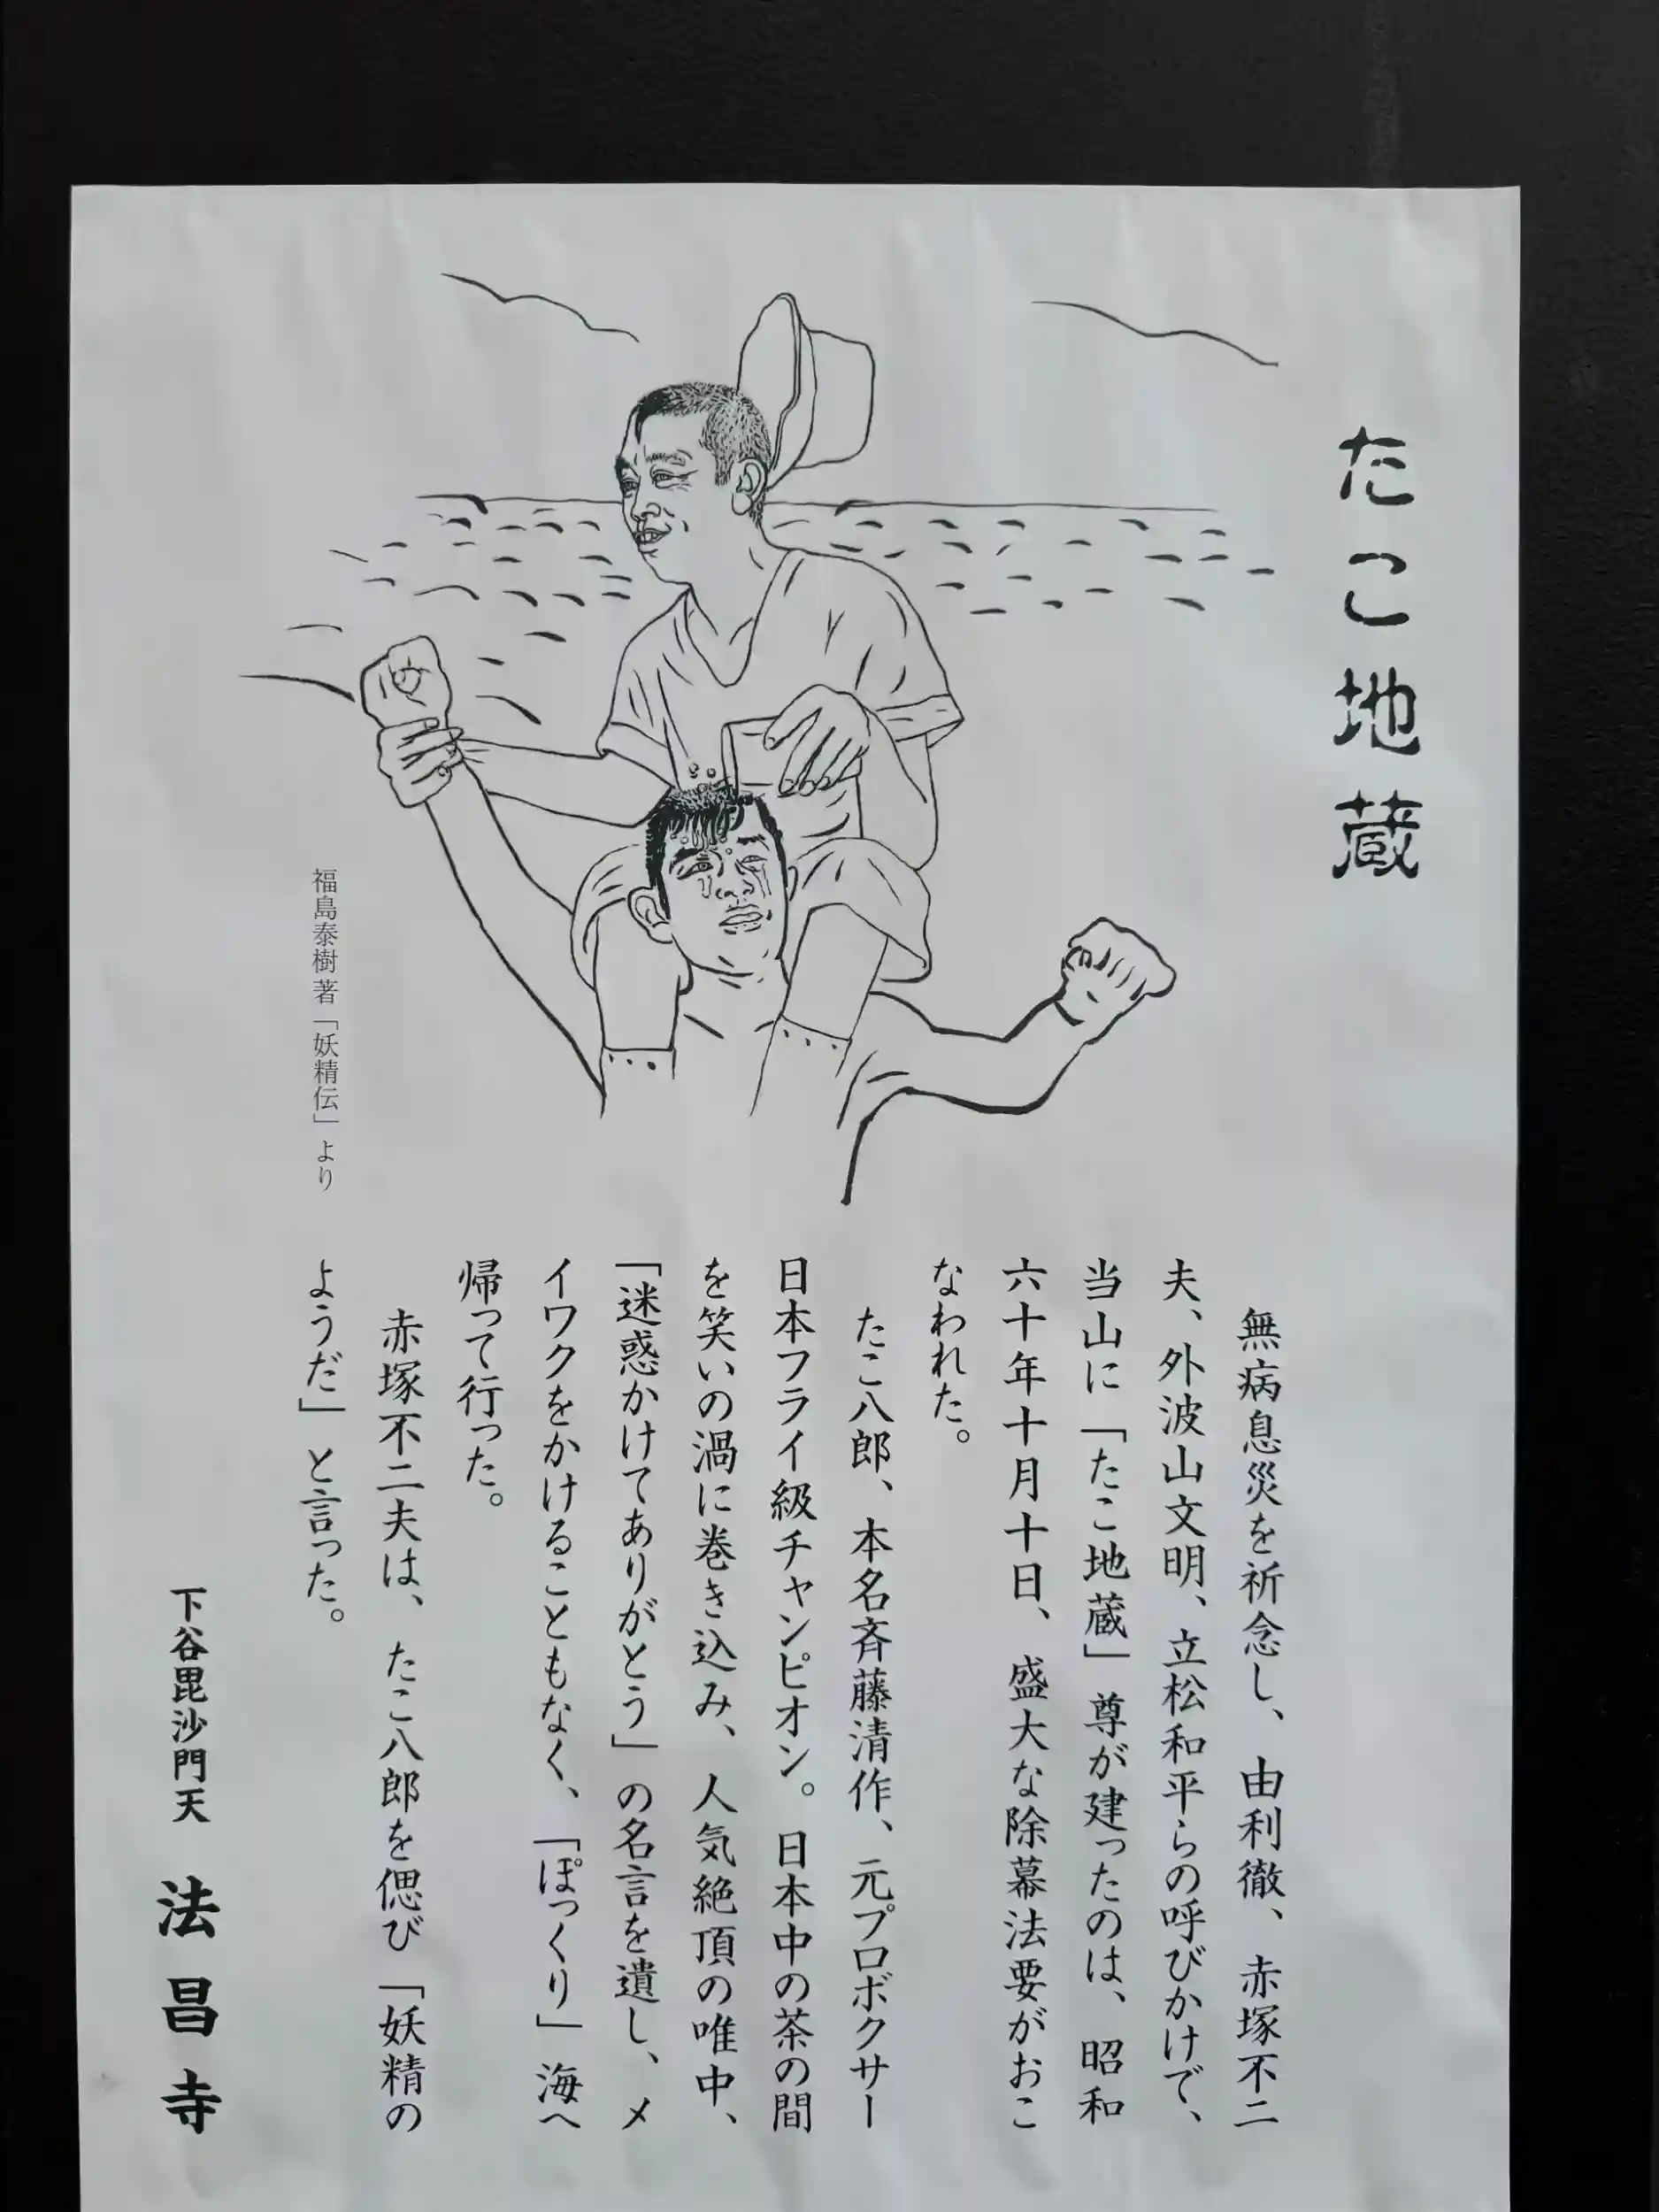 たこ地蔵
無病息災を祈念し、由利徹、赤塚不二
夫、外波山文明、立松和平らの呼びかけで、
当山に「たこ地蔵」尊が建ったのは、昭和
六十年十月十日、盛大な除幕法要がおこ
なわれた。
たこ八郎、本名斉藤清作、元プロボクサー
日本フライ級チャンピオン。日本中の茶の間
を笑いの渦に巻き込み、人気絶頂の唯中、
「迷惑かけてありがとう」の名言を遺し、メ
イワクをかけることもなく、「ぽっくり」海へ
帰って行った。
赤塚不二夫は、たこ八郎を偲び「妖精の
ようだ」と言った。
福島泰樹著「妖精伝」より
下谷毘沙門天 法昌寺